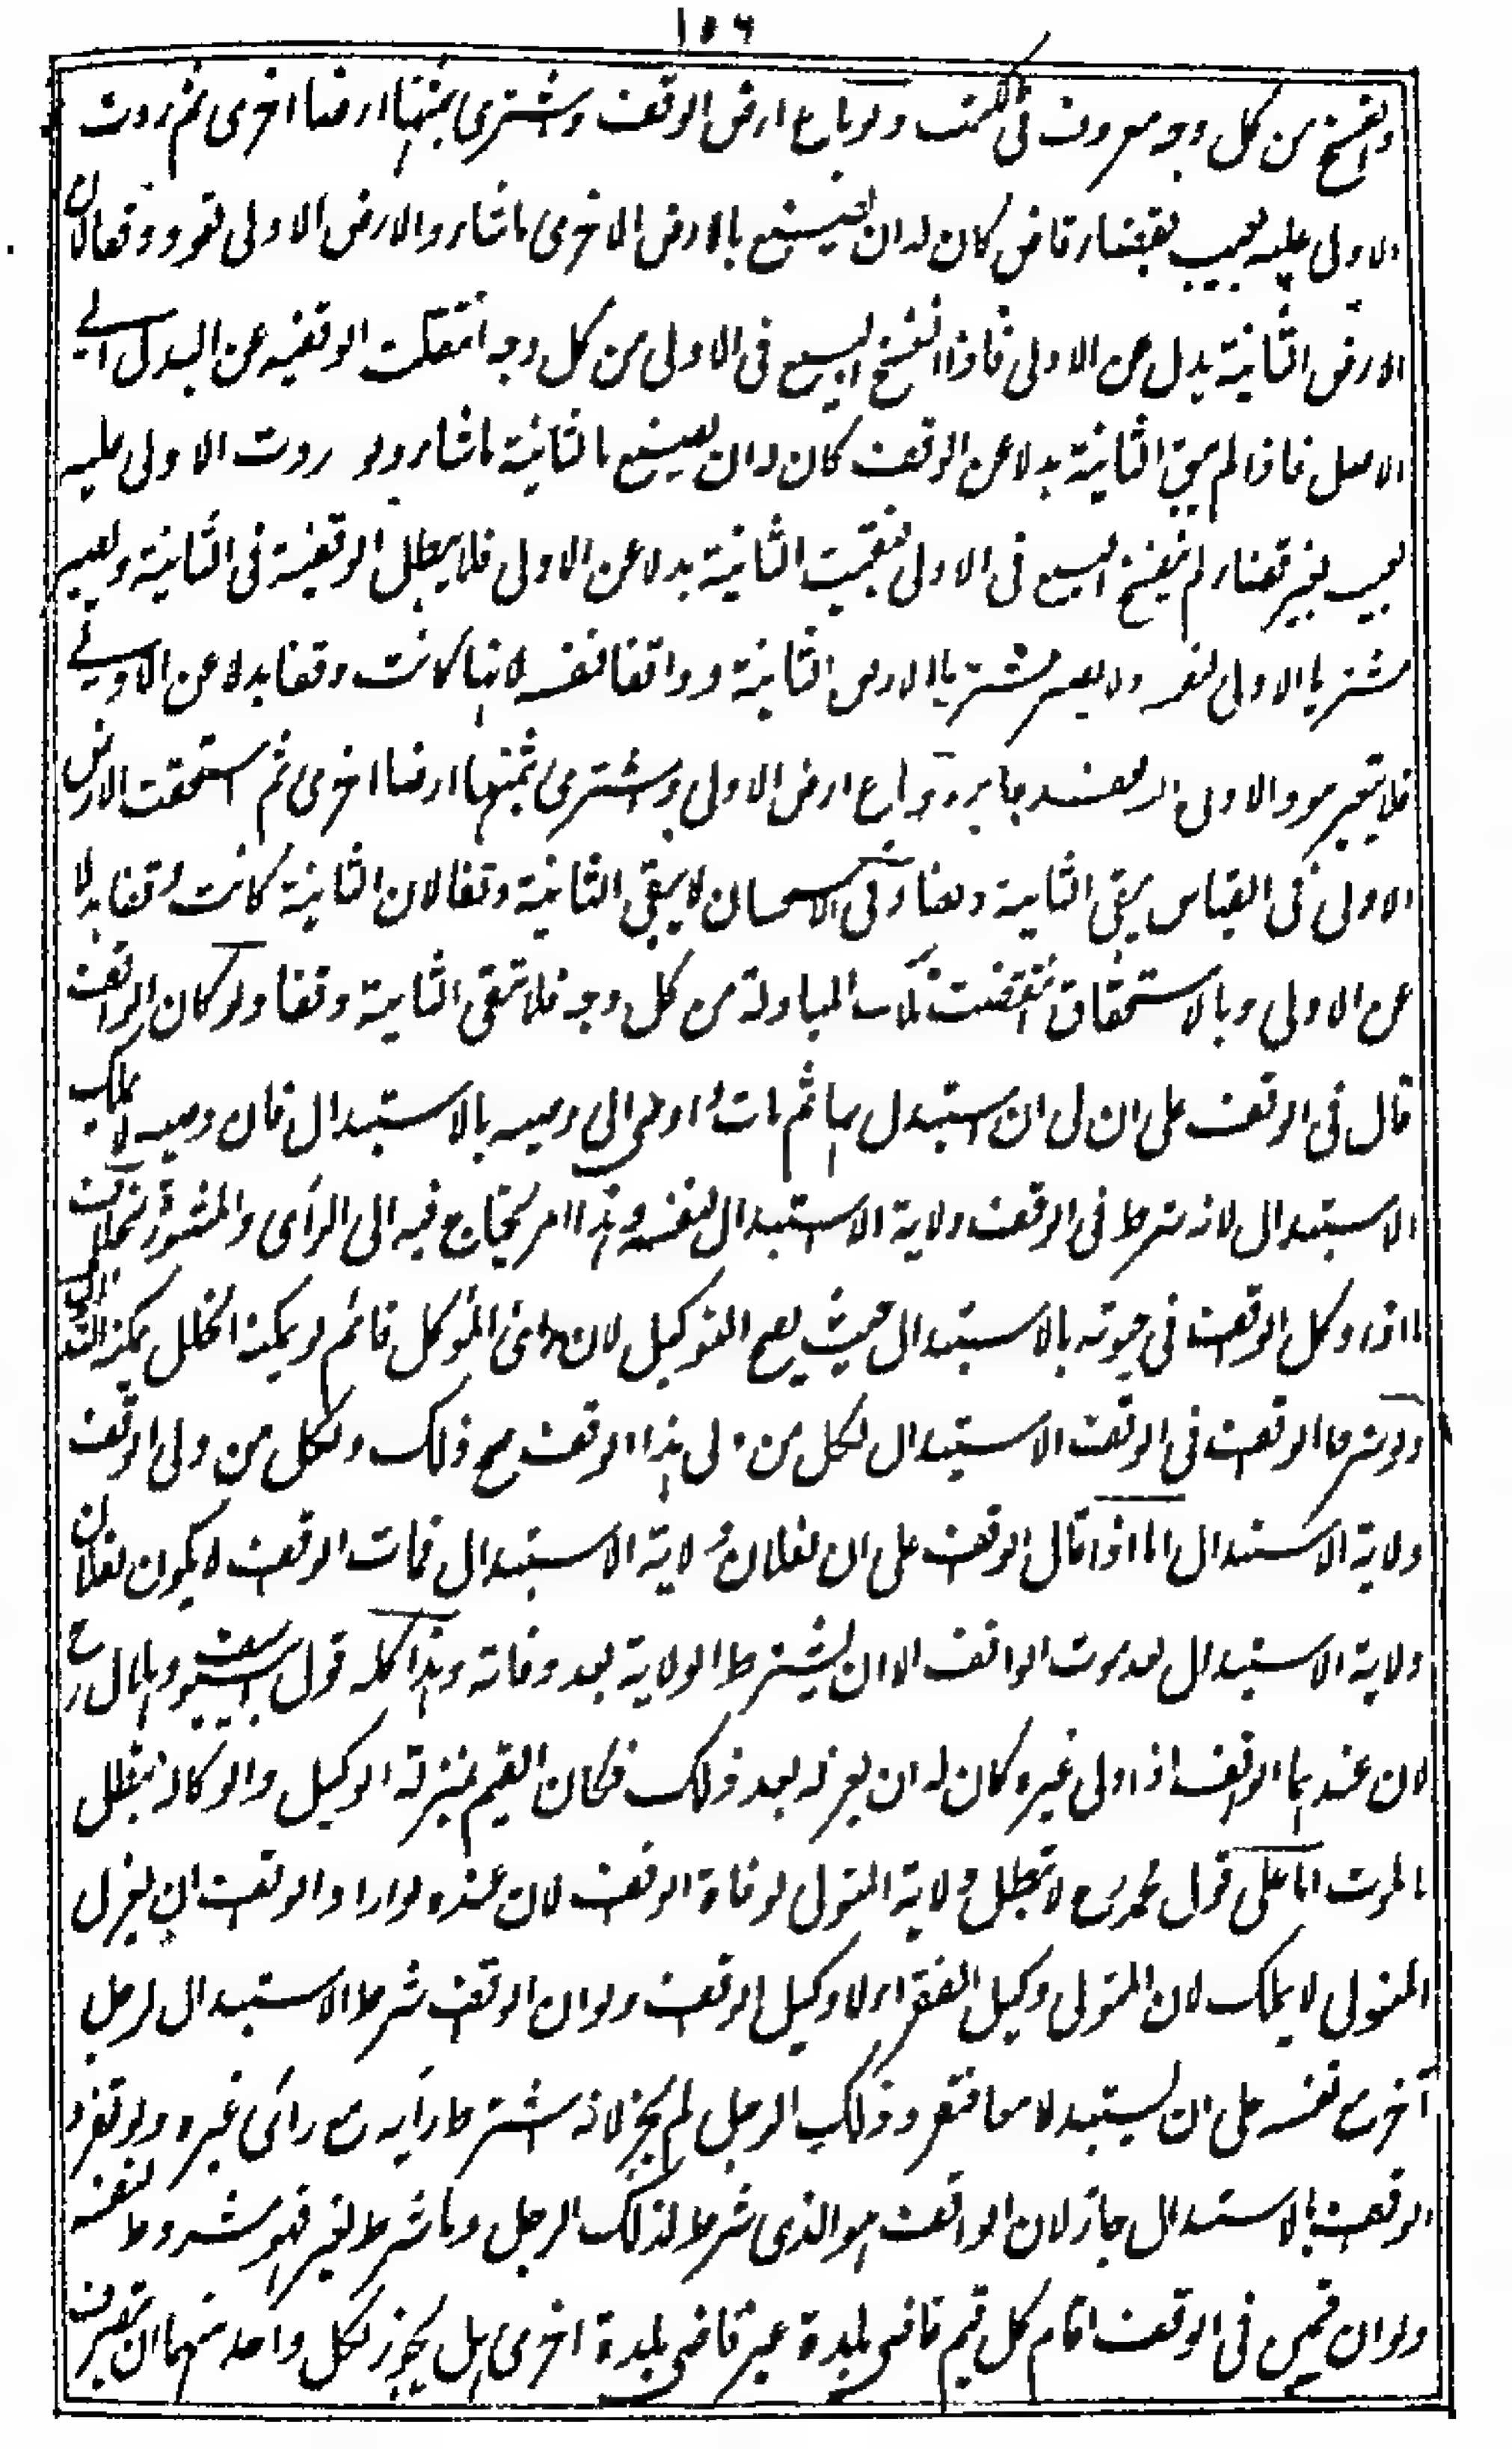 ١٥٦
والفسخ من كل وجه معروف فى الكتب ولو باع ارض الوقف واشترى بثمنها ارضا اخرى ثم ردت
الاولى عليه بعيب بقضاء قاض كان له ان يصنع بالارض الاخرى ما شاء والارض الاولى تعود وقفا لان
الارض الثانية بدل عن الاولى فاذا انفسخ البيع فى الاولى من كل وجه انتقلت الوقفية عن البدل الى
الاصل فاذا لم يبق الثانية بدلا عن الوقف كان له ان يصنع بالثانية ما شاء ولو ردت الاولى عليه
بعيب بغير قضاء لم ينفسخ البيع فى الاولى فبقيت الثانية بدلا عن الاولى فلا يبطل الوقفية فى الثانية ويصير
مشتريا الاولى لنفسه ولا يصير مشتريا الارض الثانية وواقفا لنفسه لانها كانت وقفا بدلا عن الاولى
فلا يتغير الاولى ولو باع ارض الاولى واشترى بثمنها ارضا اخرى ثم استحقت الارض
الاولى فى القياس يبقى الثانية وقفا وفى الاستحسان لا يبقى الثانية وقفا لان الثانية كانت وقفا بدلا
عن الاولى وبالاستحقاق انتقضت تلك المبادلة من كل وجه فلا تبقى الثانية وقفا ولو كان الواقف
قال فى الوقف على ان لى ان استبدل بها ثم مات واوصى الى وصيه بالاستبدال فان وصيه لا يملك
الاستبدال لانه شرط فى الوقف ولاية الاستبدال لنفسه وهذا امر يحتاج فيه الى الرأى والمشورة بخلاف
ما اذا وكل الواقف فى حيوته بالاستبدال حيث يصح التوكيل لان رائ الموكل قائم ولو تمكن الخلل يمكنه التدارك
ولو شرط الواقف فى الوقف الاستبدال لكل من ولى هذا الوقف صح ذلك ولكل من ولى الوقف
ولاية الاستبدال اما اذا قال الواقف على ان لفلان ولاية الاستبدال فمات الواقف لا يكون لفلان
ولاية الاستبدال بعد موت الواقف الا ان يشترط الولاية بعد وفاته وهذا كله قول ابى يوسف وهلال رح
لان عندهما الواقف اذا ولى غيره كان له ان يعزله بعد ذلك فكان القيم بمنزلة الوكيل والوكالة تبطل
بالموت اما على قول محمد رح لا تبطل ولاية المتولى لوفاة الواقف لان عنده لو اراد الواقف ان يعزل
المتولى لا يملك لان المتولى وكيل الفقراء لا وكيل الواقف ولو ان الواقف شرط الاستبدال لرجل
آخر مع نفسه على ان يستبدلا معا فتفرد ذلك الرجل لم يجز لانه اشترط رأيه مع رأى غيره ولو تفرد
الواقف بالاستبدال جاز لان الواقف هو الذى شرط لذلك الرجل وما شرط لغيره فهو مشروط لنفسه
ولو ان قيمين فى الوقف اقام كل قيم قاضى بلدة غير قاضى بلدة اخرى هل يجوز لكل واحد منهما ان يتصرف